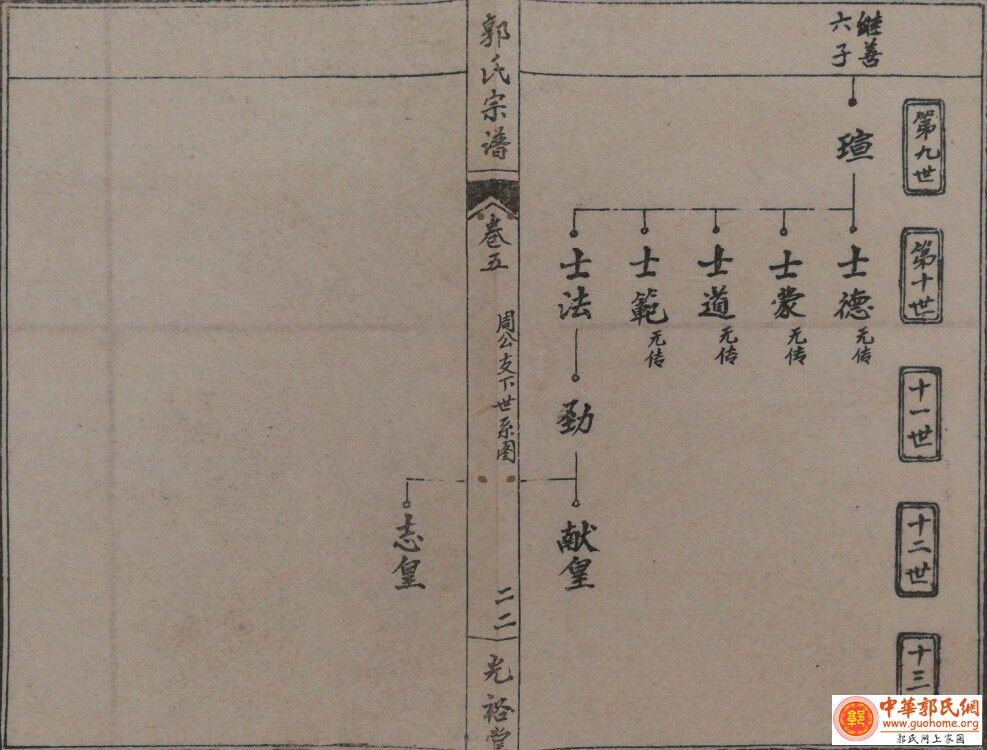 第九世
第十世
十一世
十二世
十三
善
六子
瑄
士德
无传
士蒙
无传
士道
无传
士範
无传
士法
勁
献皇
志皇
郭氏宗谱
卷五
周公支下世系图
二二
光裕堂
中華郭氏網
www.guohome.org
郭氏网上家园